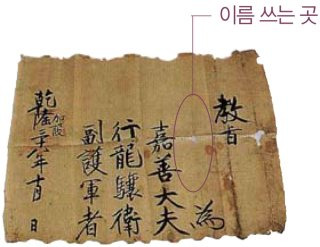 이름 쓰는 곳
教旨
爲
嘉善大夫
行龍驤衛
副護軍者
加設
乾隆 年十月 日